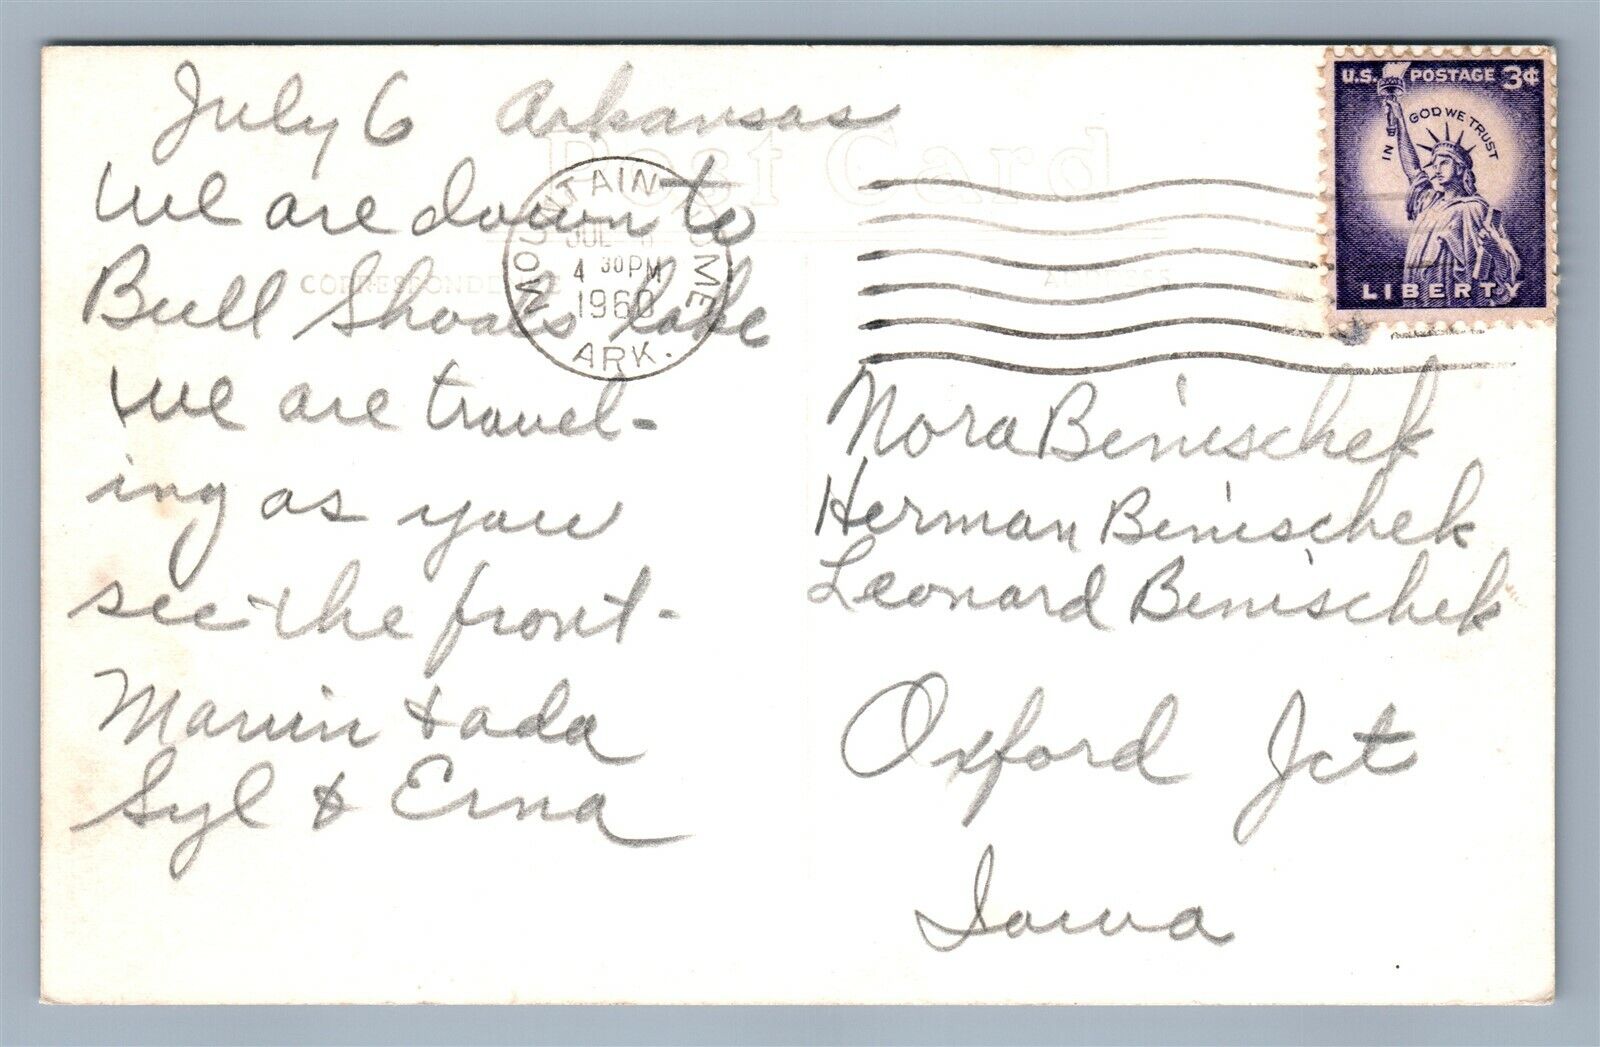 July 6 Arkansas
We are down to
Bull Shoals lake
We are travel-
ing as you
see the front-
Marvin + ada
Syl & Erna
Post Card
CORRESPONDENCE
ADDRESS
MOUNTAIN HOME
JUL 6
4 30 PM
1960
ARK.
U.S. POSTAGE 3¢
IN GOD WE TRUST
LIBERTY
Nora Benischek
Herman Benischek
Leonard Benischek
Oxford Jct
Iowa